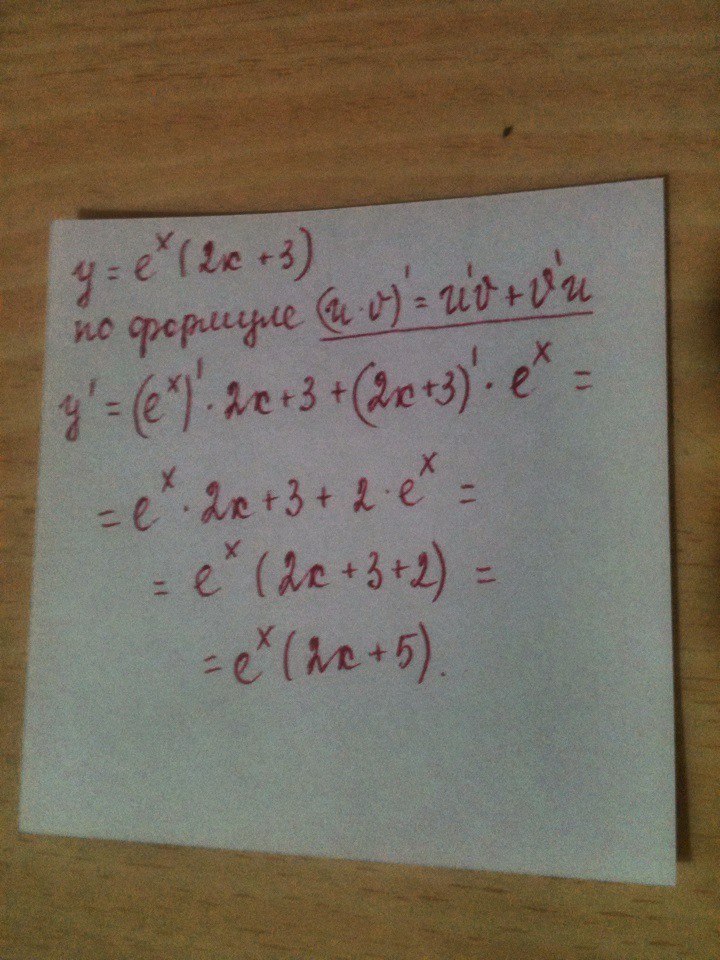 y = eˣ(2x + 3)
по формуле (u · v)' = u'v + v'u
y' = (eˣ)' · 2x + 3 + (2x + 3)' · eˣ =
= eˣ · 2x + 3 + 2 · eˣ =
= eˣ (2x + 3 + 2) =
= eˣ (2x + 5).